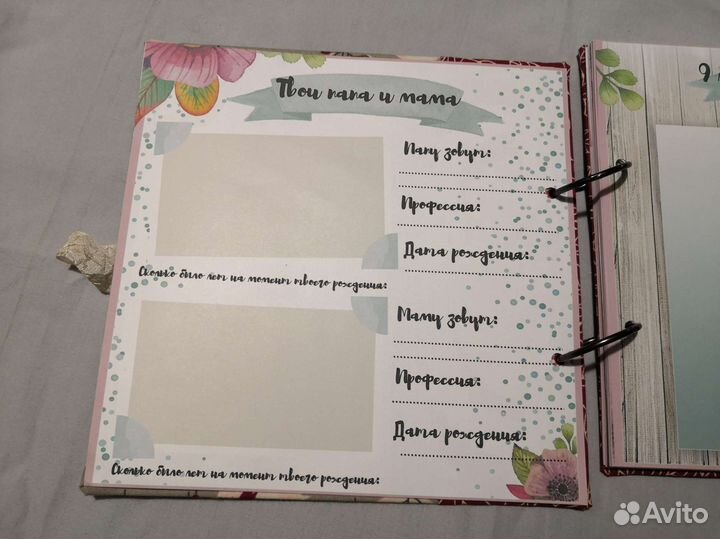 Твои папа и мама
Папу зовут:
Профессия:
Дата рождения:
Сколько было лет на момент твоего рождения:
Маму зовут:
Профессия:
Дата рождения:
Сколько было лет на момент твоего рождения:
Avito